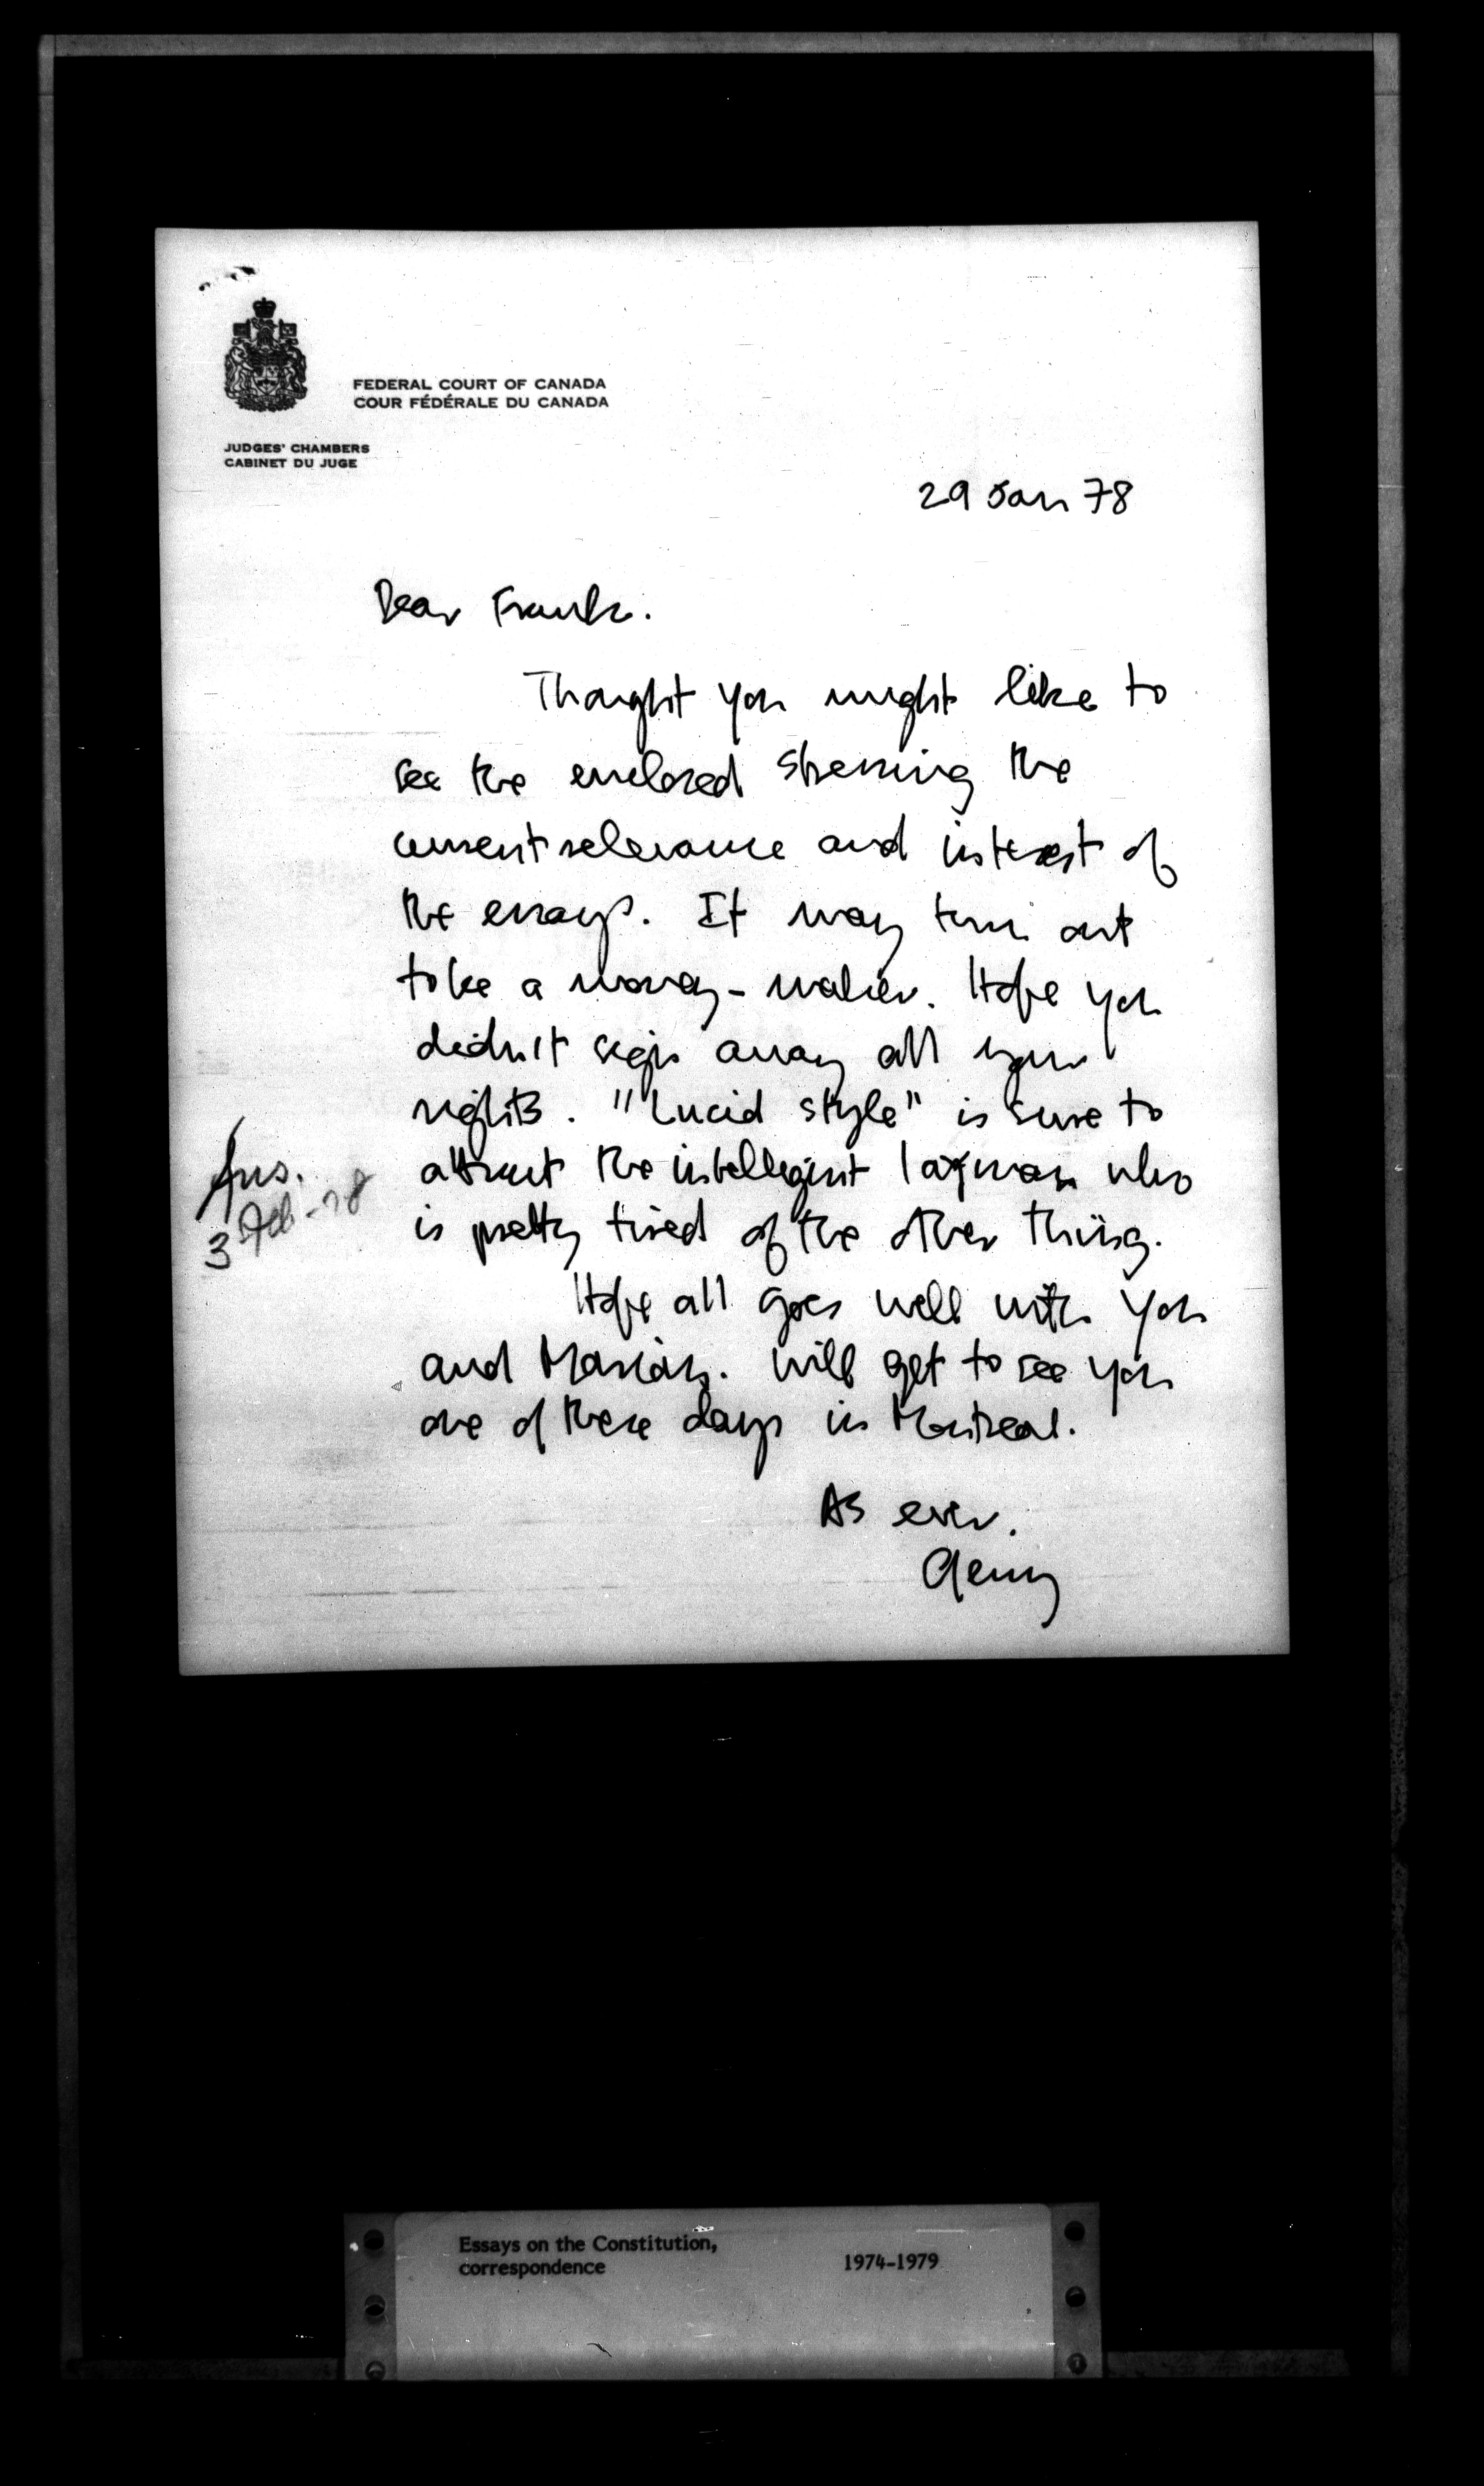 FEDERAL COURT OF CANADA
COUR FÉDÉRALE DU CANADA
JUDGES' CHAMBERS
CABINET DU JUGE
29 Jan 78
Dear Frank.
Thought you might like to
see the enclosed stressing the
current relevance and interest of
the essays. It may turn out
to be a money-maker. Hope you
didn't sign away all your
rights. "Lucid style" is sure to
attract the intelligent layman who
is pretty tired of the other thing.
Hope all goes well with you
and Marian. Will get to see you
one of these days in Montreal.
As ever.
Gerry
Ans.
3 Feb-78
Essays on the Constitution,
correspondence 1974-1979